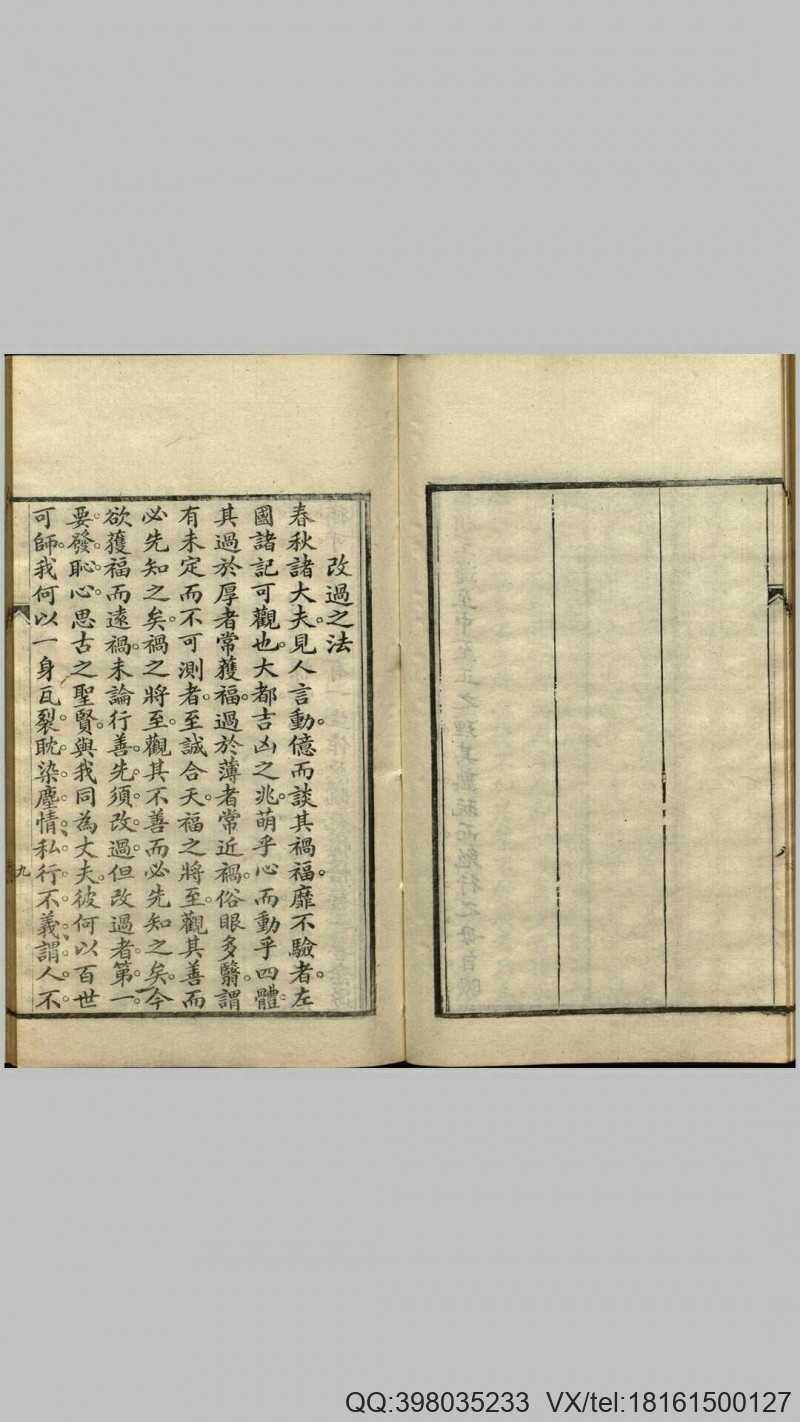 改過之法
春秋諸大夫。見人言動。億而談其禍福。靡不驗者。左
國諸記可觀也。大都吉凶之兆。萌乎心而動乎四體
其過於厚者常獲福。過於薄者常近禍。俗眼多翳。謂
有未定而不可測者。至誠合天。福之將至。觀其善而
必先知之矣。禍之將至。觀其不善而必先知之矣。今
欲獲福而遠禍。未論行善。先須改過。但改過者。第一。
要發恥心。思古之聖賢。與我同為丈夫。彼何以百世
可師。我何以一身瓦裂。耽染塵情、私行不義、謂人不
九
QQ:398035233 VX/tel:18161500127